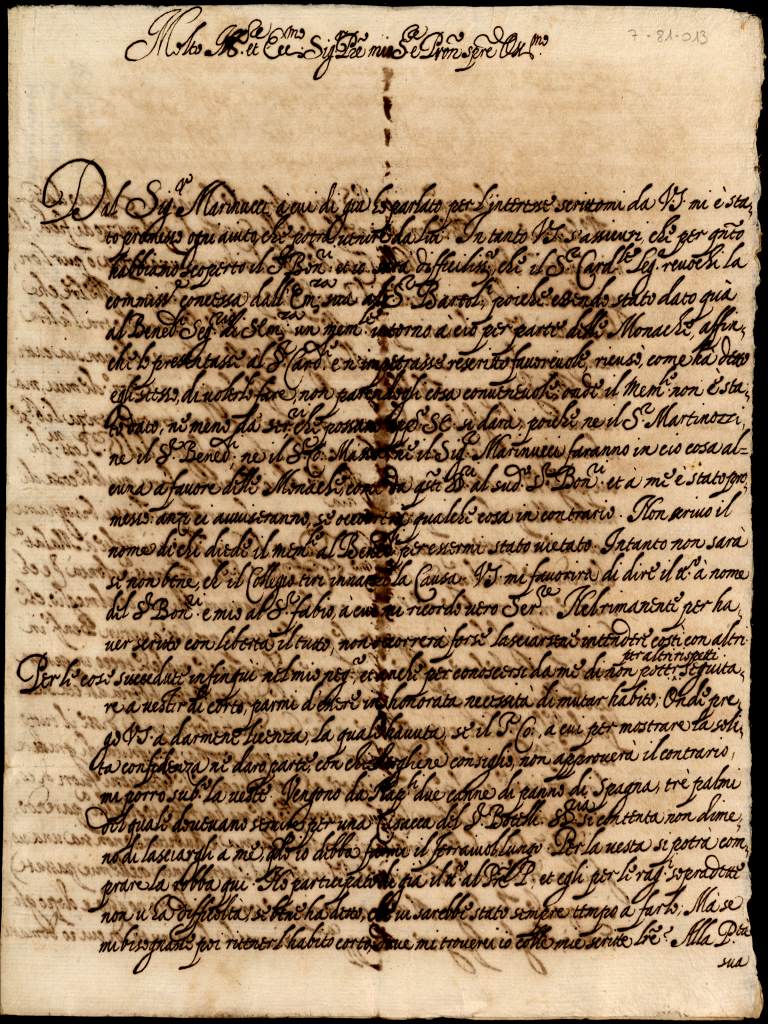 7-81-013
Molto Ill.re et Ecc.mo Sig.r Pre mio Sre Pron spre Oss.mo
Dal Sig.r Marinucci à cui di già hò parlato per l'interesse scrittomi da VS. mi è sta-
to promesso ogni aiuto, che potrà venire da lui. In tanto VS. s'assicuri, che per q.nto
habbiamo scoperto il S.r Bon.ri et io, sarà difficiliss.o che il S.r Card.le Leg.o revochi la
commiss.e concessa dall' Em.za sua al S.r Bartol. poiche essendo stato dato quà
al Bened. Seg.rio di S. Em.za un mem.le intorno à ciò per parte delle Monache, affin-
che lo presentasse al S.r Card.le e n'impetrasse rescritto favorevole, ricusò, come hà detto
egli stesso, di volerlo fare, non parendogli cosa convenevole; onde il Mem.le non è sta-
to dato, ne meno da che possano si darà, poiche ne il S.r Martinozzi,
ne il S.r Bened. ne il S.r ne il Sig.r Marinucci faranno in cio cosa al=
cuna a favore delle Monache, come da q.sti al sud.o S.r Bon.ri et a me è stato pro-
messo: anzi ci avviseranno, se occorrerà qualche cosa in contrario. Non scrivo il
nome di chi diede il mem.le al Bened. per essermi stato vietato. Intanto non sarà
se non bene, ch'il Collegio tiri innanzi la Causa. VS. mi favorirà di dire il tt.o à nome
del S.r Bon.ri e mio al S.r fabio, a cui mi ricordo vero Ser.re Nel rimanente per ha-
ver scritto con libertà il tutto, non occorrerà forse lasciarsene intendere così con altri
per altri rispetti
Per le cose succedute infin qui nel mio neg.o et anche per conoscersi da me di non poter seguita-
re a vestir di corto, parmi d'essere in honorata necessità di mutar habito. Onde pre-
go VS. a darmene licenza, la quale havuta, se il P. Co., à cui per mostrare la soli-
ta confidenza ne darò parte, con chiedergliene consiglio, non approverà il contrario,
mi porrò sub.o la veste. Vengono da Nap.li due canne di panno di Spagna, trè palmi
del quale dovevano servire per una del S.r Bottelli: si contenta non dime-
no di lasciargli a me, q.do io debba farmi il ferraiuol lungo. Per la vesta si potrà com-
prare la robba qui. Hò participato di già il tt.o al Pre P. et egli per le rag.i sopradette
non ci hà difficoltà, se bene hà detto, che vi sarebbe stato sempre tempo a farlo; Mà se
mi bisognasse poi ritener l'habito corto, dove mi troverei io colle mie scritte lre? Alla P.tà
sua